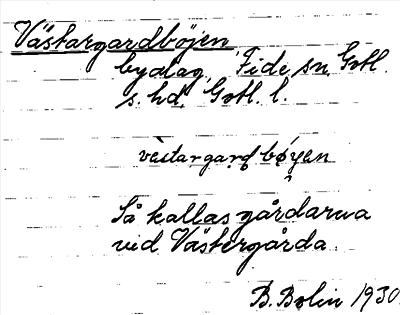 Västargardbøjen
bydlag, Fide sn, Gotl.
s. hd, Gotl. l.
vèstargarđ bǿyen
Så kallas gårdarna
vid Västergårda.
B. Bolin 1930.